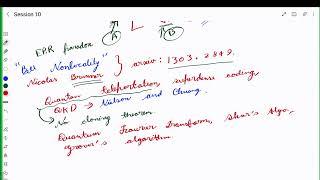 Session 10
EPR paradox
A B
"Bell Nonlocality"
Nicolas Brunner } arxiv: 1303.2849.
Quantum teleportation, superdense coding
QKD → Nielson and Chuang.
No cloning theorem
Quantum Fourier Transform, Shor's Algo,
Grover's algorithm.